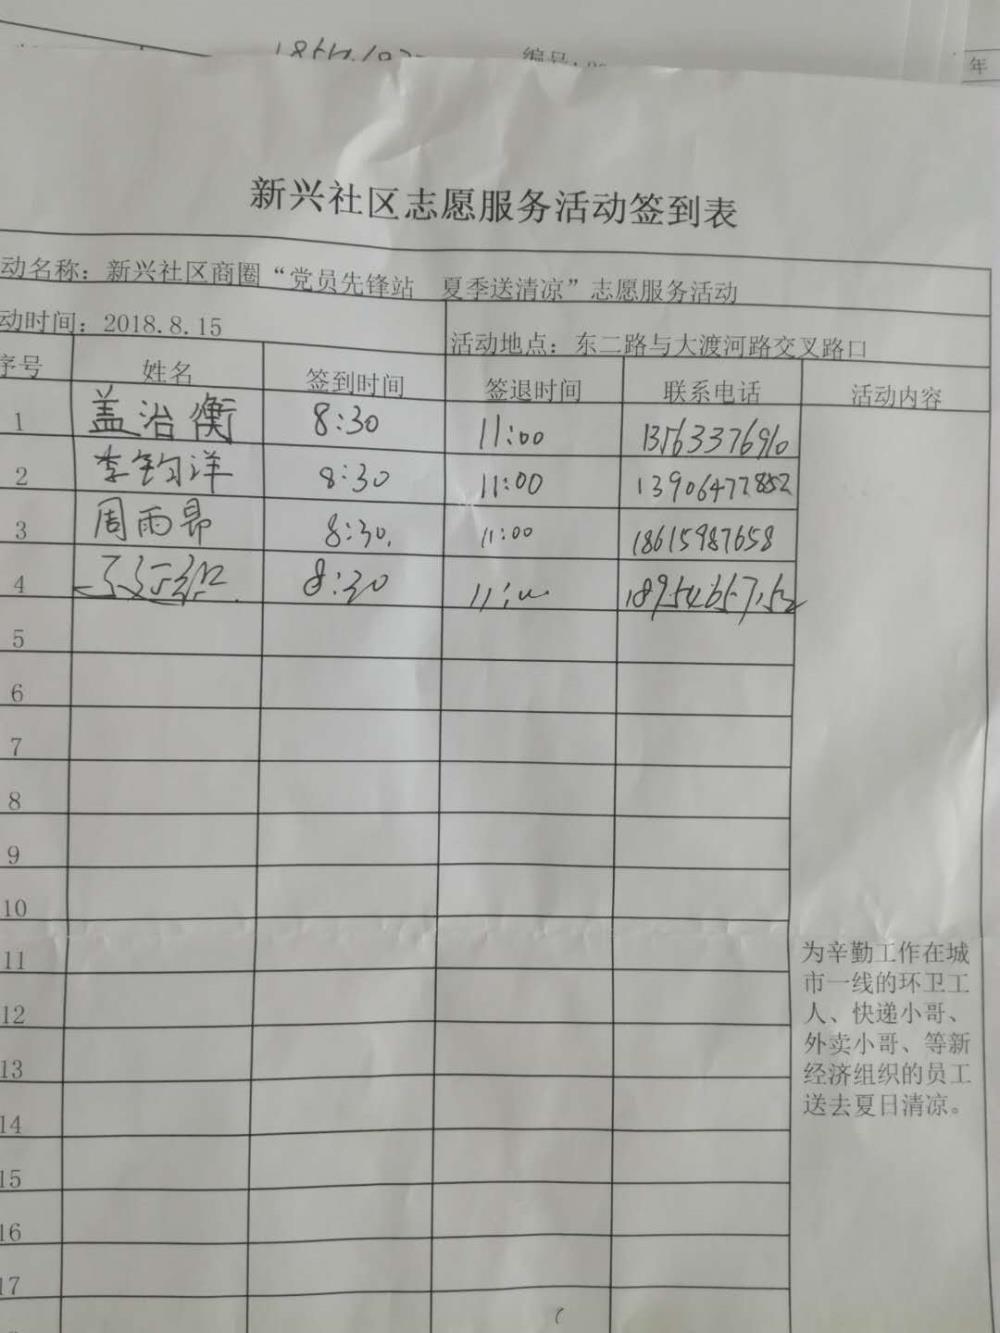 编号:
年
新兴社区志愿服务活动签到表
动名称：新兴社区商圈“党员先锋站　夏季送清凉”志愿服务活动
动时间：2018.8.15 活动地点：东二路与大渡河路交叉路口
序号 姓名 签到时间 签退时间 联系电话 活动内容
1 盖治衡 8:30 11:00 13563376910
2 李钧洋 8:30 11:00 13906477852
3 周雨昂 8:30. 11:00 18615987658
4 8:30
5
6
7
8
9
10
11
12
13
14
15
16
17
为辛勤工作在城
市一线的环卫工
人、快递小哥、
外卖小哥、等新
经济组织的员工
送去夏日清凉。